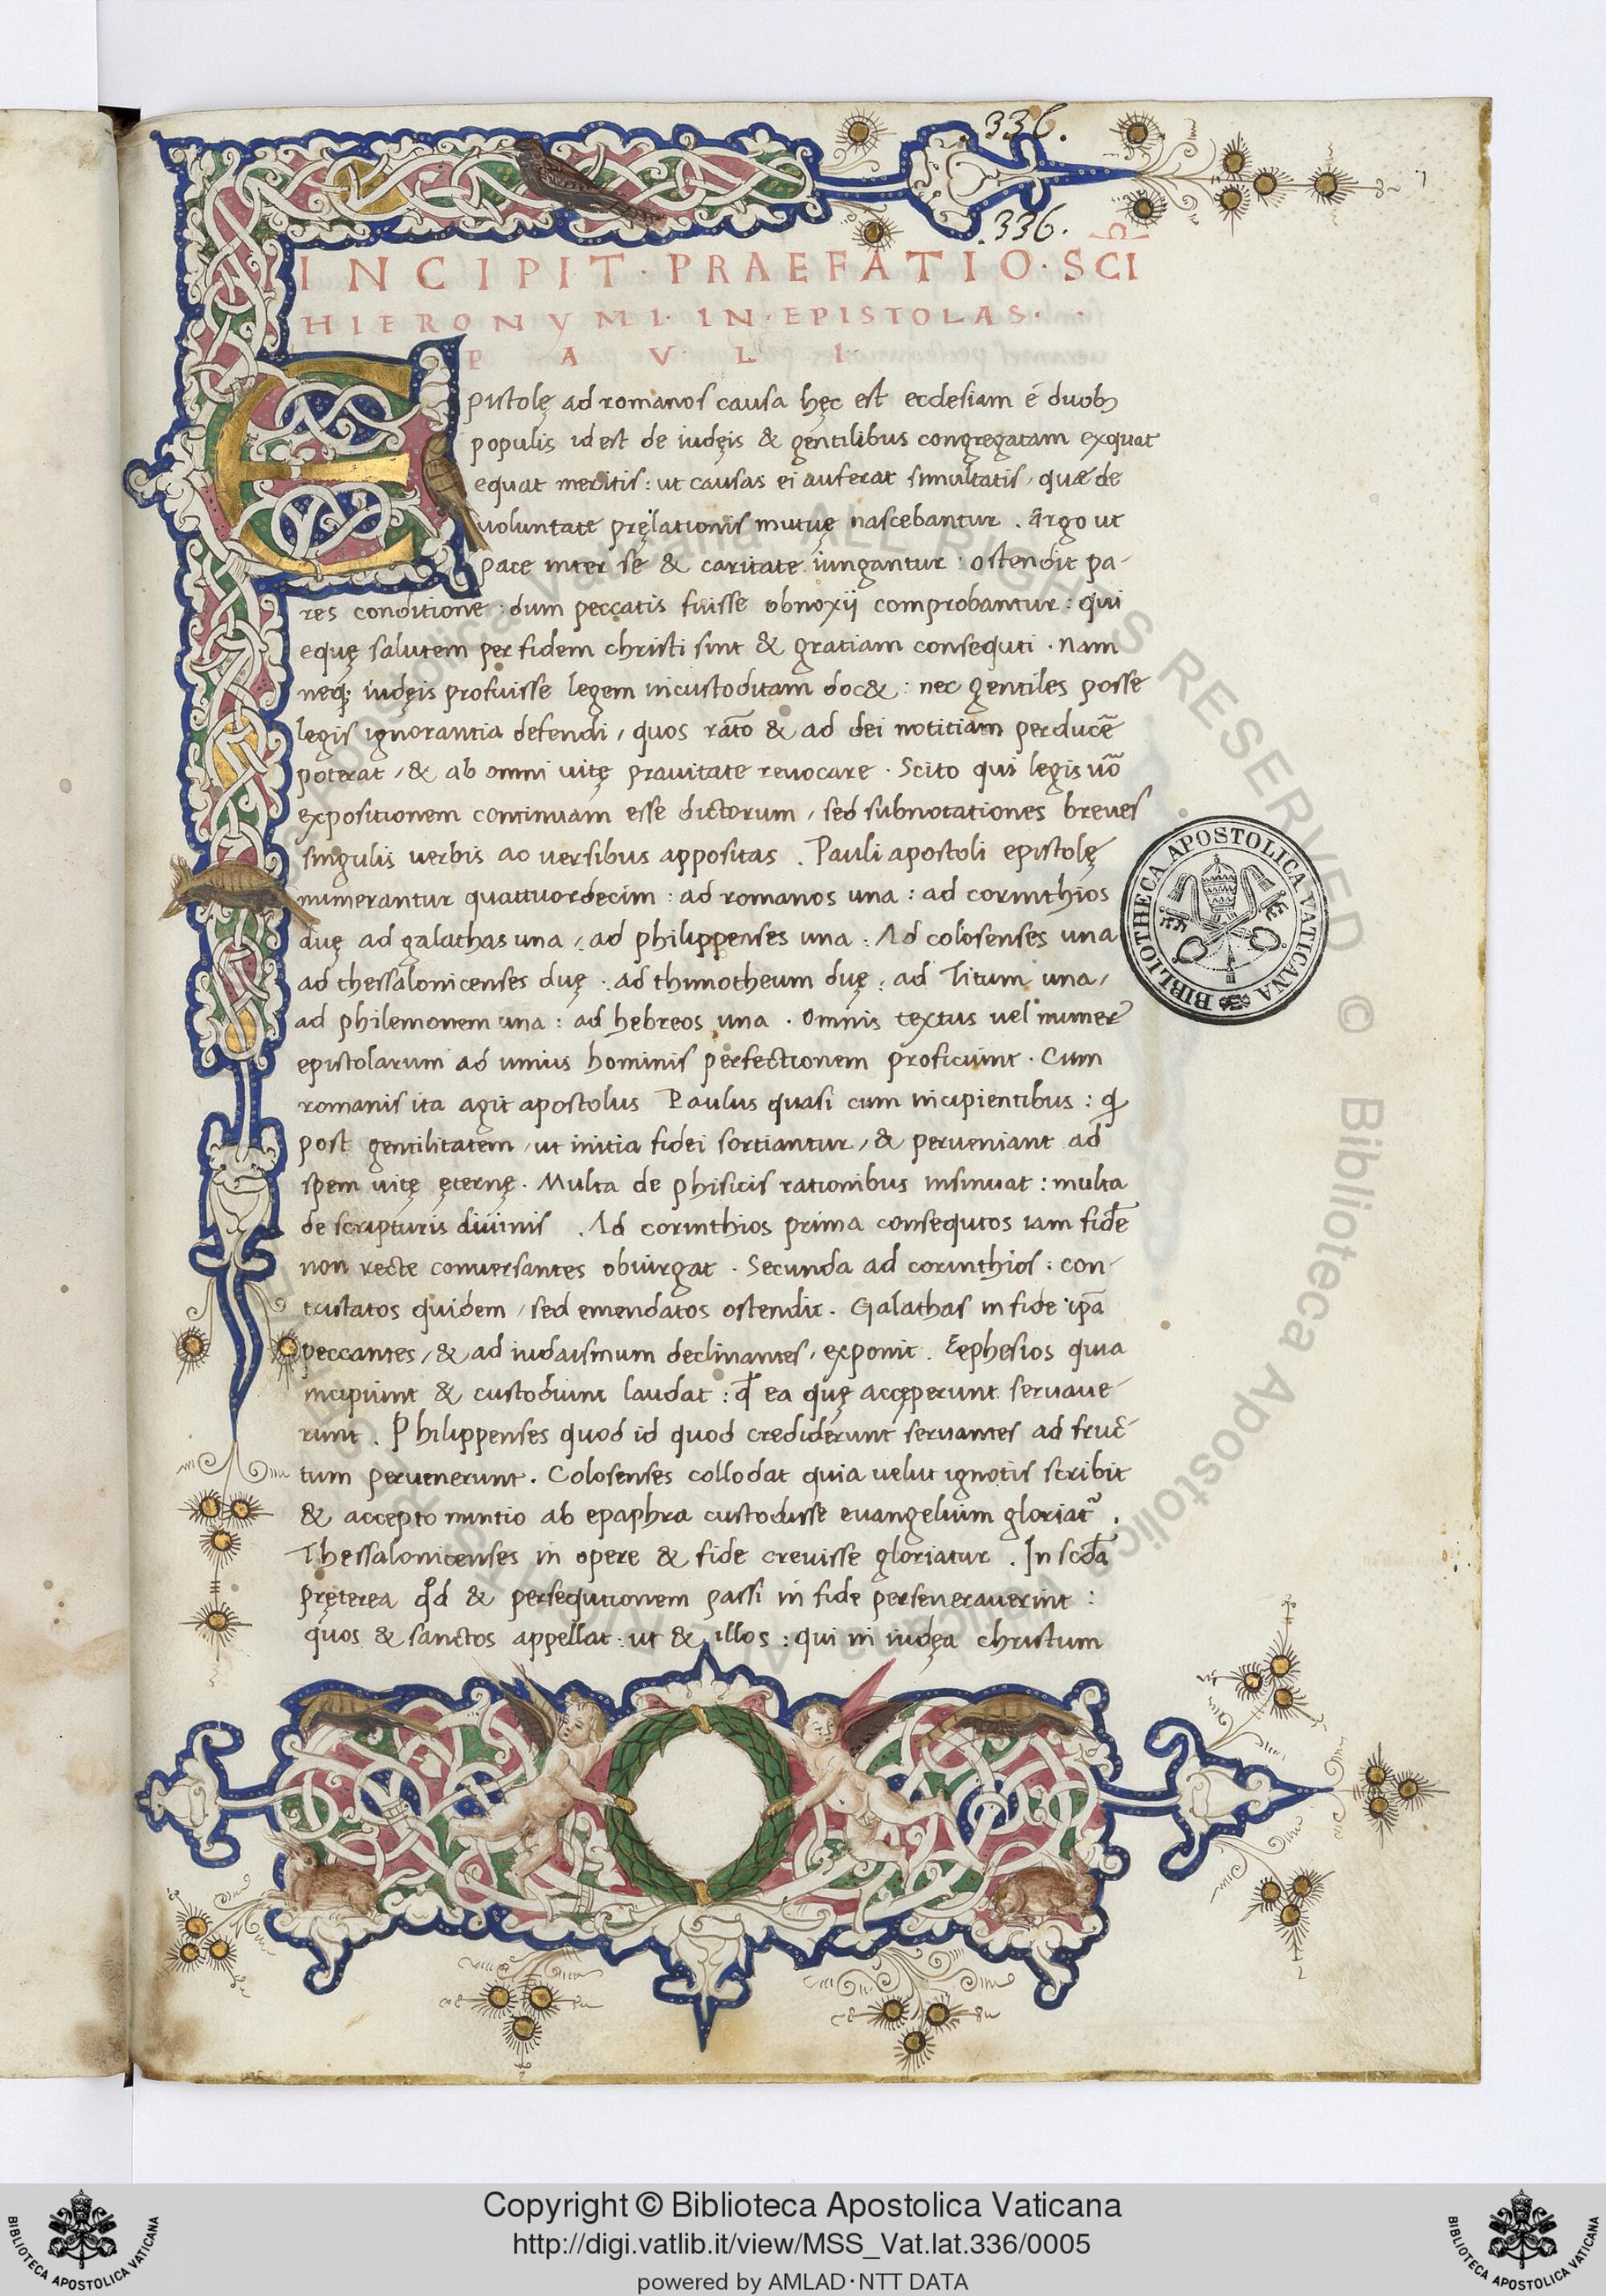 .336.
.336.
INCIPIT · PRAEFATIO · SCI
HIERONYMI · IN · EPISTOLAS ·
PAVLI
Epistolę ad romanos causa hęc est ecclesiam ē duob;
populis id est de iudęis & gentilibus congregatam exquat
equat meritis : ut causas ei auferat simultatis , quae de
voluntate pręlationis mutuę nascebantur . Ergo ut
pace inter se & caritate iungantur : ostendit pa-
res conditione : dum peccatis fuisse obnoxij comprobantur : qui
equę salutem per fidem christi sint & gratiam consequti . Nam
neq; iudęis profuisse legem incustoditam doc& : nec gentiles posse
legis ignorantia defendi , quos rato & ad dei notitiam perducē
poterat , & ab omni uitę prauitate revocare . Scito qui legis nō
expositionem continuam esse dictorum , sed subnotationes breves
singulis verbis ac versibus appositas . Pauli apostoli epistolę
numerantur quattuordecim : ad romanos una : ad corinthios
duę ad galathas una : ad philippenses una : Ad colosenses una
ad thessalonicenses duę . ad thimotheum duę : ad Titum una ,
ad philemonem una : ad hebreos una . Omnis textus vel numer
epistolarum ad unius hominis perfectionem proficiunt . Cum
romanis ita agit apostolus Paulus quasi cum incipientibus : q
post gentilitatem , ut initia fidei sortiantur , & perveniant ad
spem uitę ęternę . Multa de phisicis rationibus insinuat : multa
de scripturis divinis . Ad corinthios prima consequtos iam fidē
non recte conversantes obiurgat . Secunda ad corinthios : con-
tristatos quidem , sed emendatos ostendit . Galathas in fide ipā
peccantes , & ad iudaismum declinantes , exponit . Eephesios quia
incipiunt & custodiunt laudat : q ea quę accęperunt servave-
runt . Philippenses quod id quod crediderunt servantes ad fruc-
tum pervenerunt . Colosenses collodat quia velut ignotis scribit
& accepto nuntio ab epaphra custodisse evangelium gloriat .
Thessalonicenses in opere & fide crevisse gloriatur . In scda
pręterea qd & persequtionem passi in fide perseneraverint :
quos & sanctos appellat : ut & illos : qui in iudęa christum
BIBLIOTHECA APOSTOLICA VATICANA
ALL RIGHTS RESERVED © Biblioteca Apostolica Vaticana
Copyright © Biblioteca Apostolica Vaticana
http://digi.vatlib.it/view/MSS_Vat.lat.336/0005
powered by AMLAD·NTT DATA
BIBLIOTECA APOSTOLICA VATICANA
BIBLIOTECA APOSTOLICA VATICANA